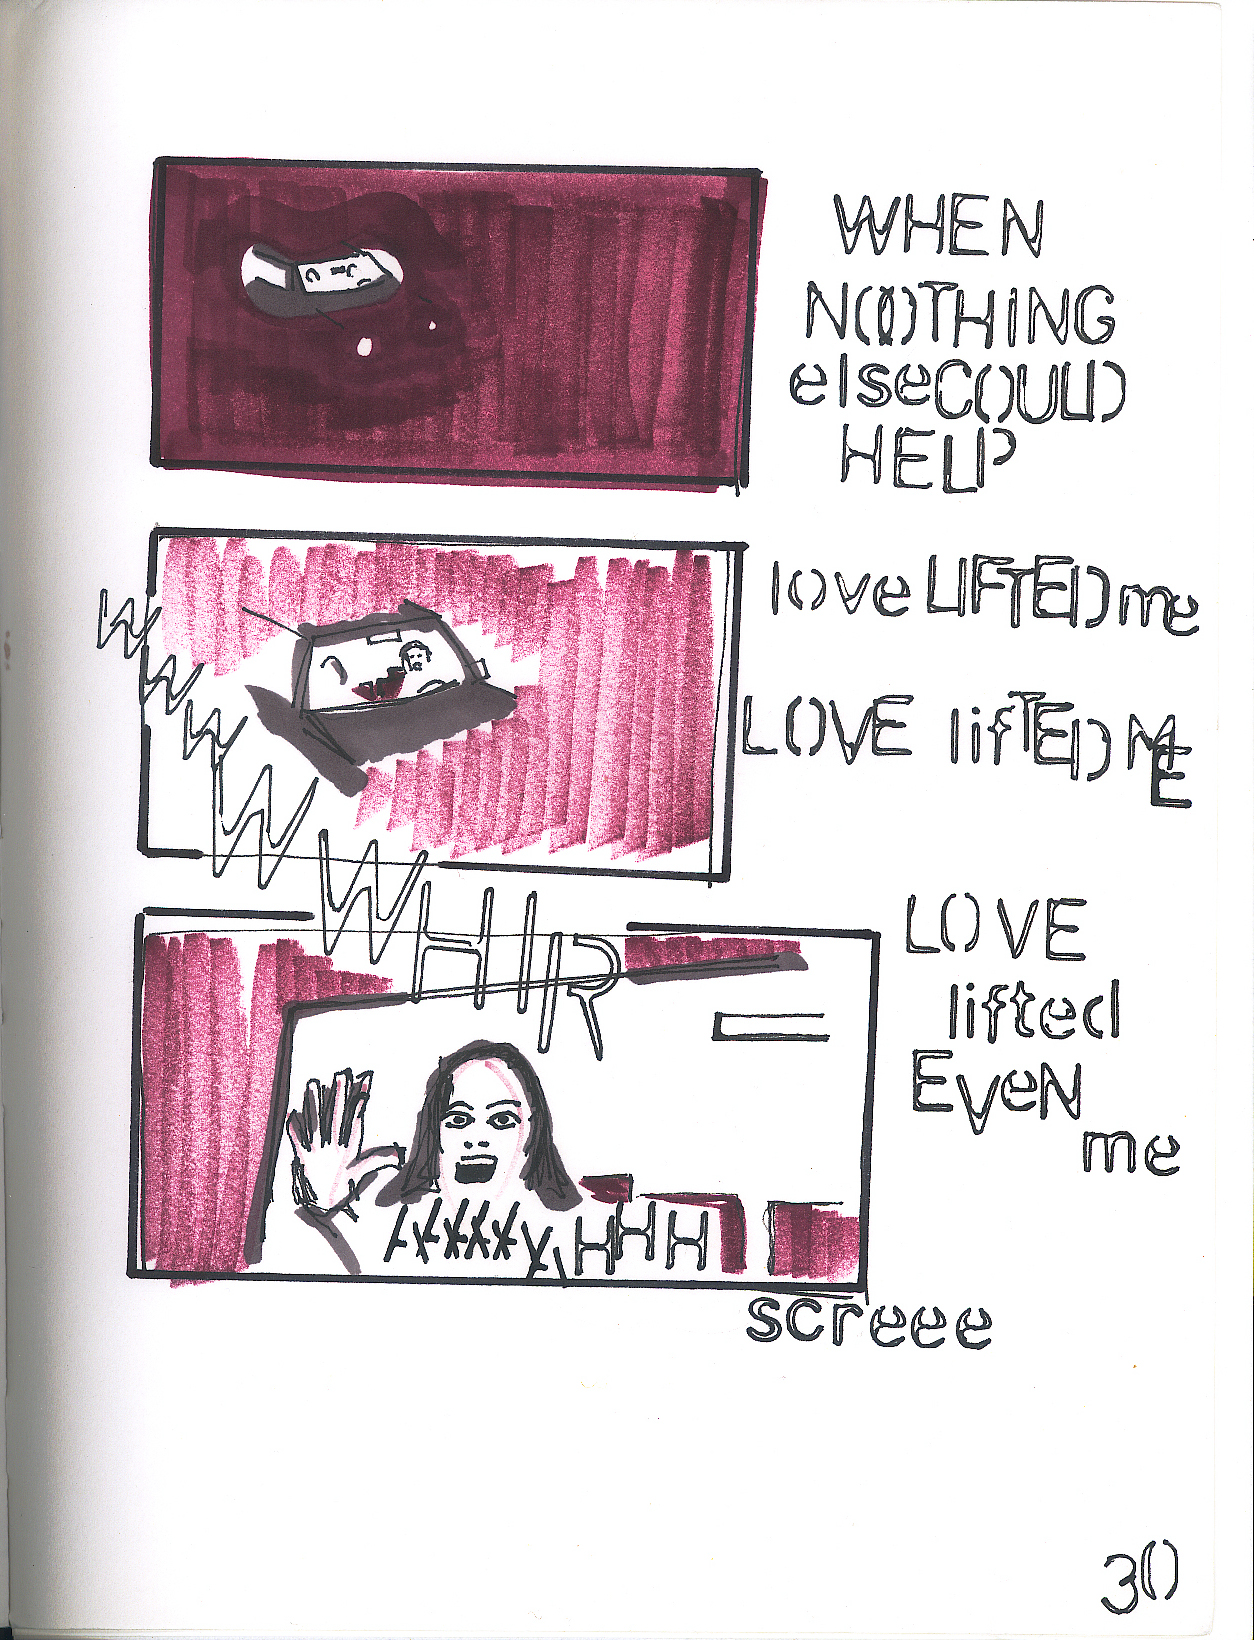 WHEN
NOOTHING
elseCOULD
HELP
love LIFTED me
LOVE lifTED ME
WWWWWWHIR
LOVE
lifted
EVeN
me
AAAAAAHHH
screee
30